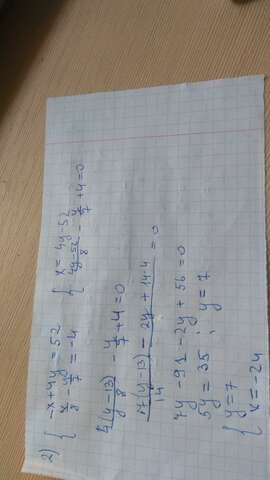 2) { -x + 4y = 52 { x = 4y - 52
x/8 - y/7 = -4 (4y-52)/8 - y/7 + 4 = 0
4(y-13)/8 - y/7 + 4 = 0
(7(y-13) - 2y + 14·4)/14 = 0
7y - 91 - 2y + 56 = 0
5y = 35 ; y = 7
{ y = 7
x = -24